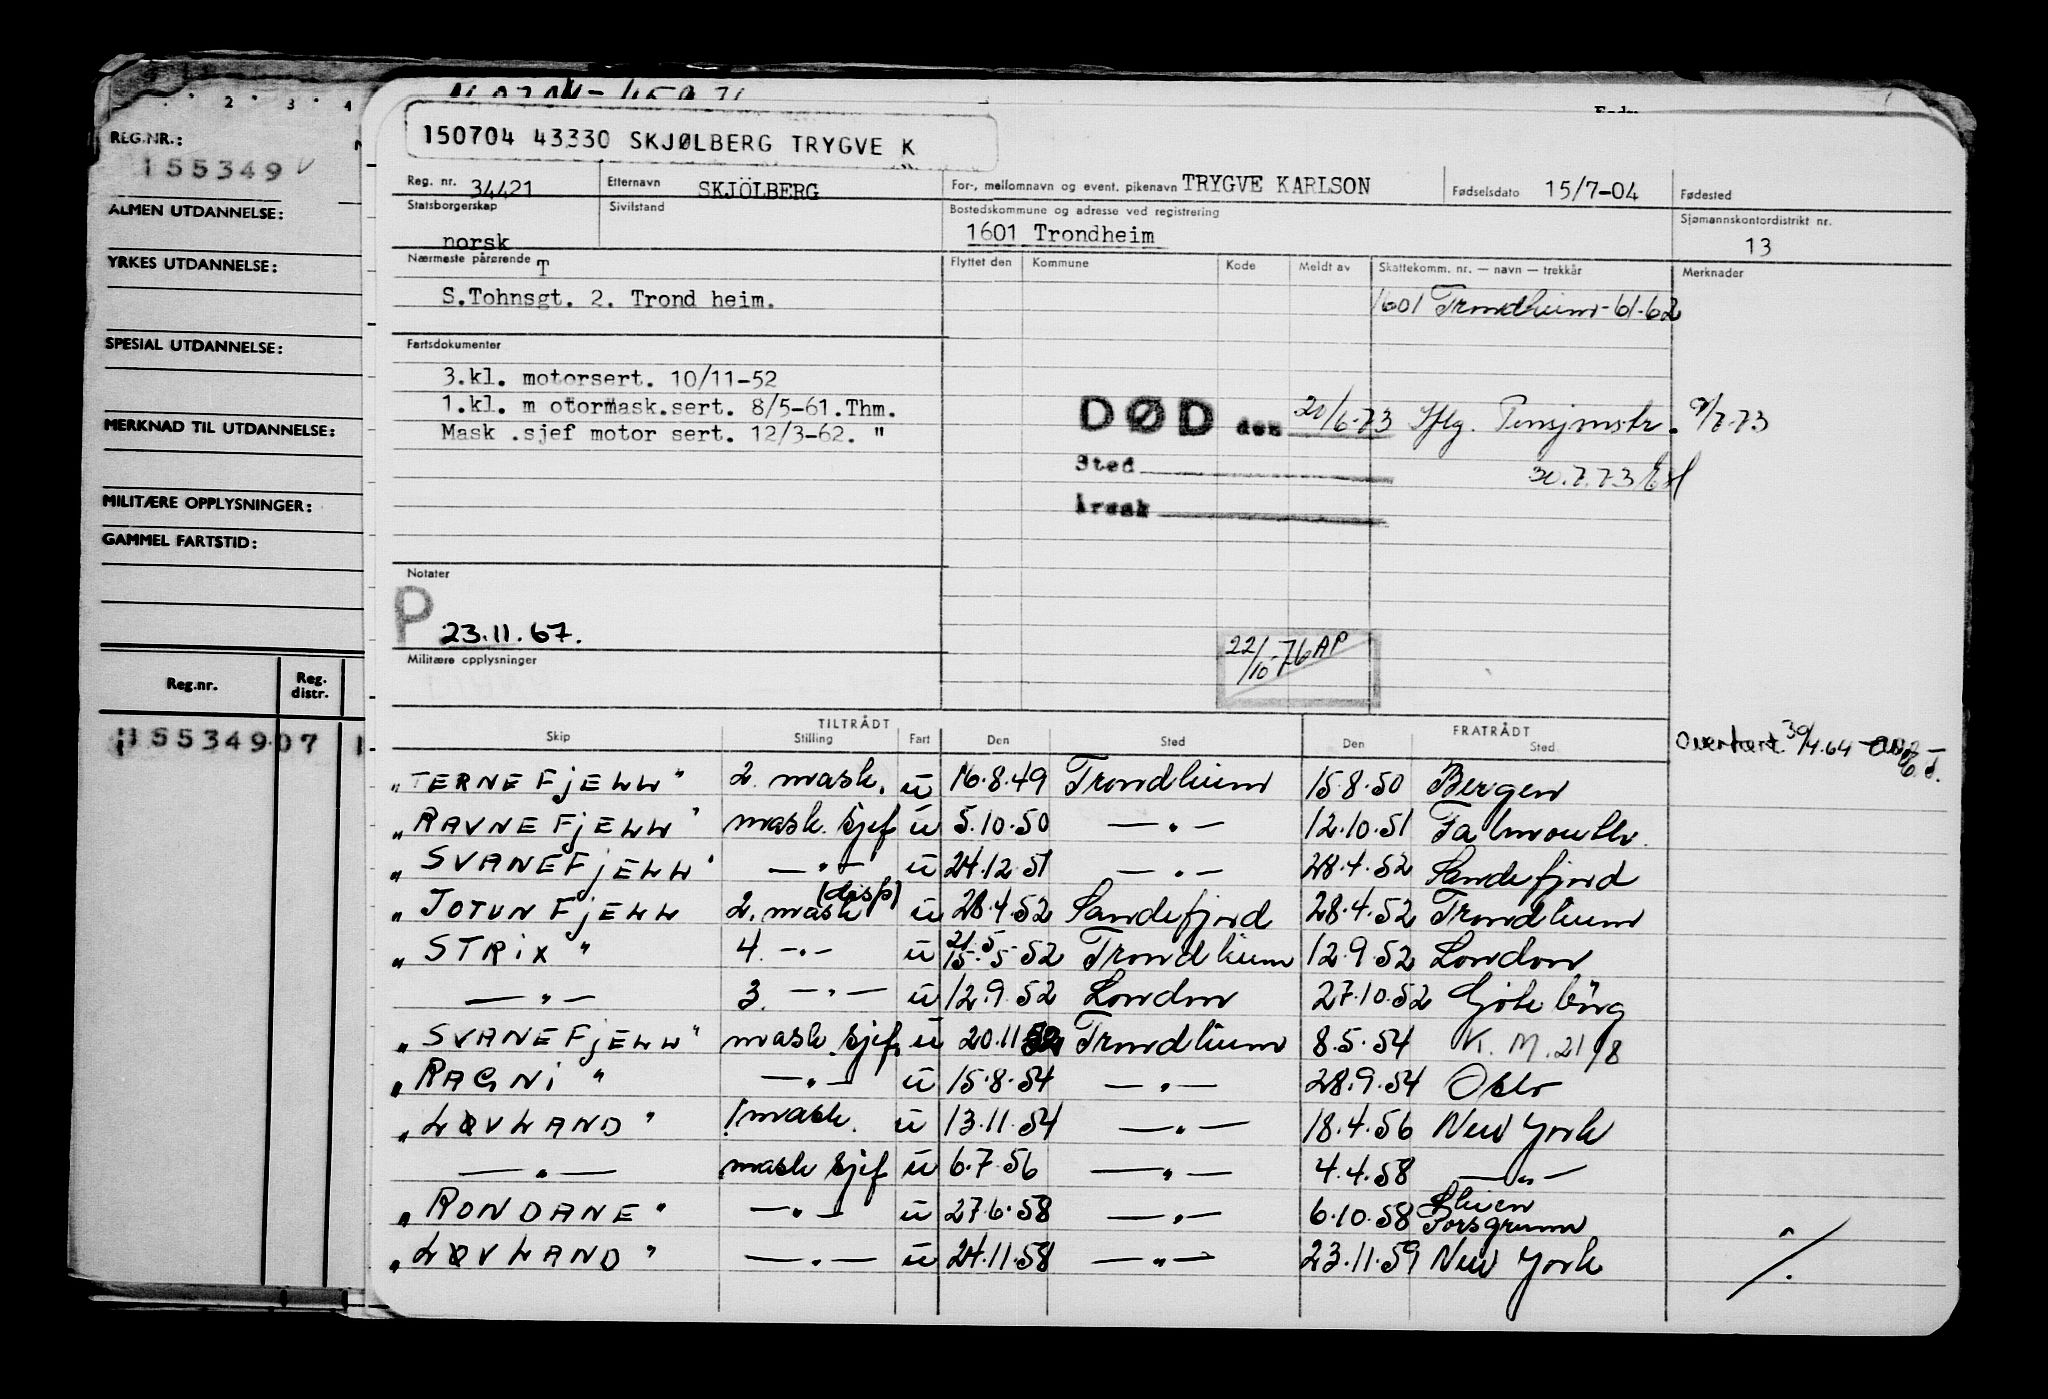 2 3 4
REG.NR.:
155349
ALMEN UTDANNELSE:
YRKES UTDANNELSE:
SPESIAL UTDANNELSE:
MERKNAD TIL UTDANNELSE:
MILITÆRE OPPLYSNINGER:
GAMMEL FARTSTID:
Reg.nr. Reg. distr.
155349 07
150704 43330 SKJØLBERG TRYGVE K
Reg. nr. 34421 Etternavn SKJÖLBERG For-, mellomnavn og event. pikenavn TRYGVE KARLSON Fødselsdato 15/7-04 Fødested
Statsborgerskap Sivilstand Bostedskommune og adresse ved registrering Sjømannskontordistrikt nr.
norsk 1601 Trondheim 13
Nærmeste pårørende T Flyttet den Kommune Kode Meldt av Skattekomm. nr. — navn — trekkår Merknader
S.Tohnsgt. 2. Trond heim. 1601 Trondheim-61-62
Fartsdokumenter
3.kl. motorsert. 10/11-52
1.kl. m otormask.sert. 8/5-61.Thm.
Mask .sjef motor sert. 12/3-62. "
DØD den 20/6-73 Iflg. Pensjonstr. 9/7-73
Sted 30.7.73
Årsak
Notater
P 23.11.67.
22/10-76 AP
Militære opplysninger
TILTRÅDT FRATRÅDT
Skip Stilling Fart Den Sted Den Sted
Overført 30/4.64
"TERNEFJELL" 2. mask. u 16.8.49 Trondheim 15.8.50 Bergen
"RAVNEFJELL" mask. sjef u 5.10.50 —"— 12.10.51 Falmouth
"SVANEFJELL" —"— u 24.12.51 —"— 28.4.52 Sandefjord
"JOTUNFJELL 2. mask (disp) u 28.4.52 Sandefjord 28.4.52 Trondheim
"STRIX" 4. —"— u 21.5 15.5-52 Trondheim 12.9.52 London
—"— 3. —"— u 12.9.52 London 27.10.52 Göteborg
"SVANEFJELL" mask. sjef u 20.11.52 Trondheim 8.5.54 K.M. 21/8
"RAGNI" —"— u 15.8.54 —"— 28.9.54 Oslo
"LØVLAND" 1 mask. u 13.11.54 —"— 18.4.56 New York
—"— mask sjef u 6.7.56 —"— 4.4.58 —"—
"RONDANE" —"— u 27.6.58 —"— 6.10.58 Skien Porsgrunn
"LØVLAND" —"— u 24.11.58 —"— 23.11.59 New York